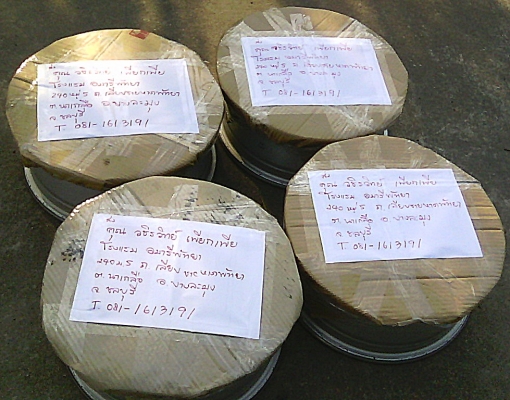 คุณ วชิรวิทย์ เพียกเพีย
โรงแรม อมารีพัทยา
240 ม.5 ถ.เลียบชายหาดพัทยา
ต.นาเกลือ อ.บางละมุง
จ.ชลบุรี
T. 081-1613191
คุณ วชิรวิทย์ เพียกเพีย
โรงแรม อมารีพัทยา
240 ม.5 ถ.เลียบชายหาดพัทยา
ต.นาเกลือ อ.บางละมุง
จ.ชลบุรี
T. 081-1613191
คุณ วชิรวิทย์ เพียกเพีย
โรงแรม อมารีพัทยา
240 ม.5 ถ.เลียบชายหาดพัทยา
ต.นาเกลือ อ.บางละมุง
จ.ชลบุรี
T. 081-1613191
คุณ วชิรวิทย์ เพียกเพีย
โรงแรม อมารีพัทยา
240 ม.5 ถ.เลียบชายหาดพัทยา
ต.นาเกลือ อ.บางละมุง
จ.ชลบุรี
T. 081-1613191